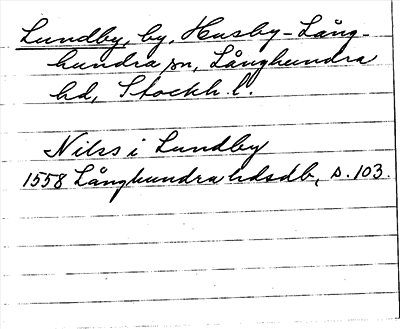 Lundby, by, Husby-Lång-
hundra sn, Långhundra
hd, Stockh. l.
Nilss i Lundby
1558 Långhundra hdsdb, s. 103.